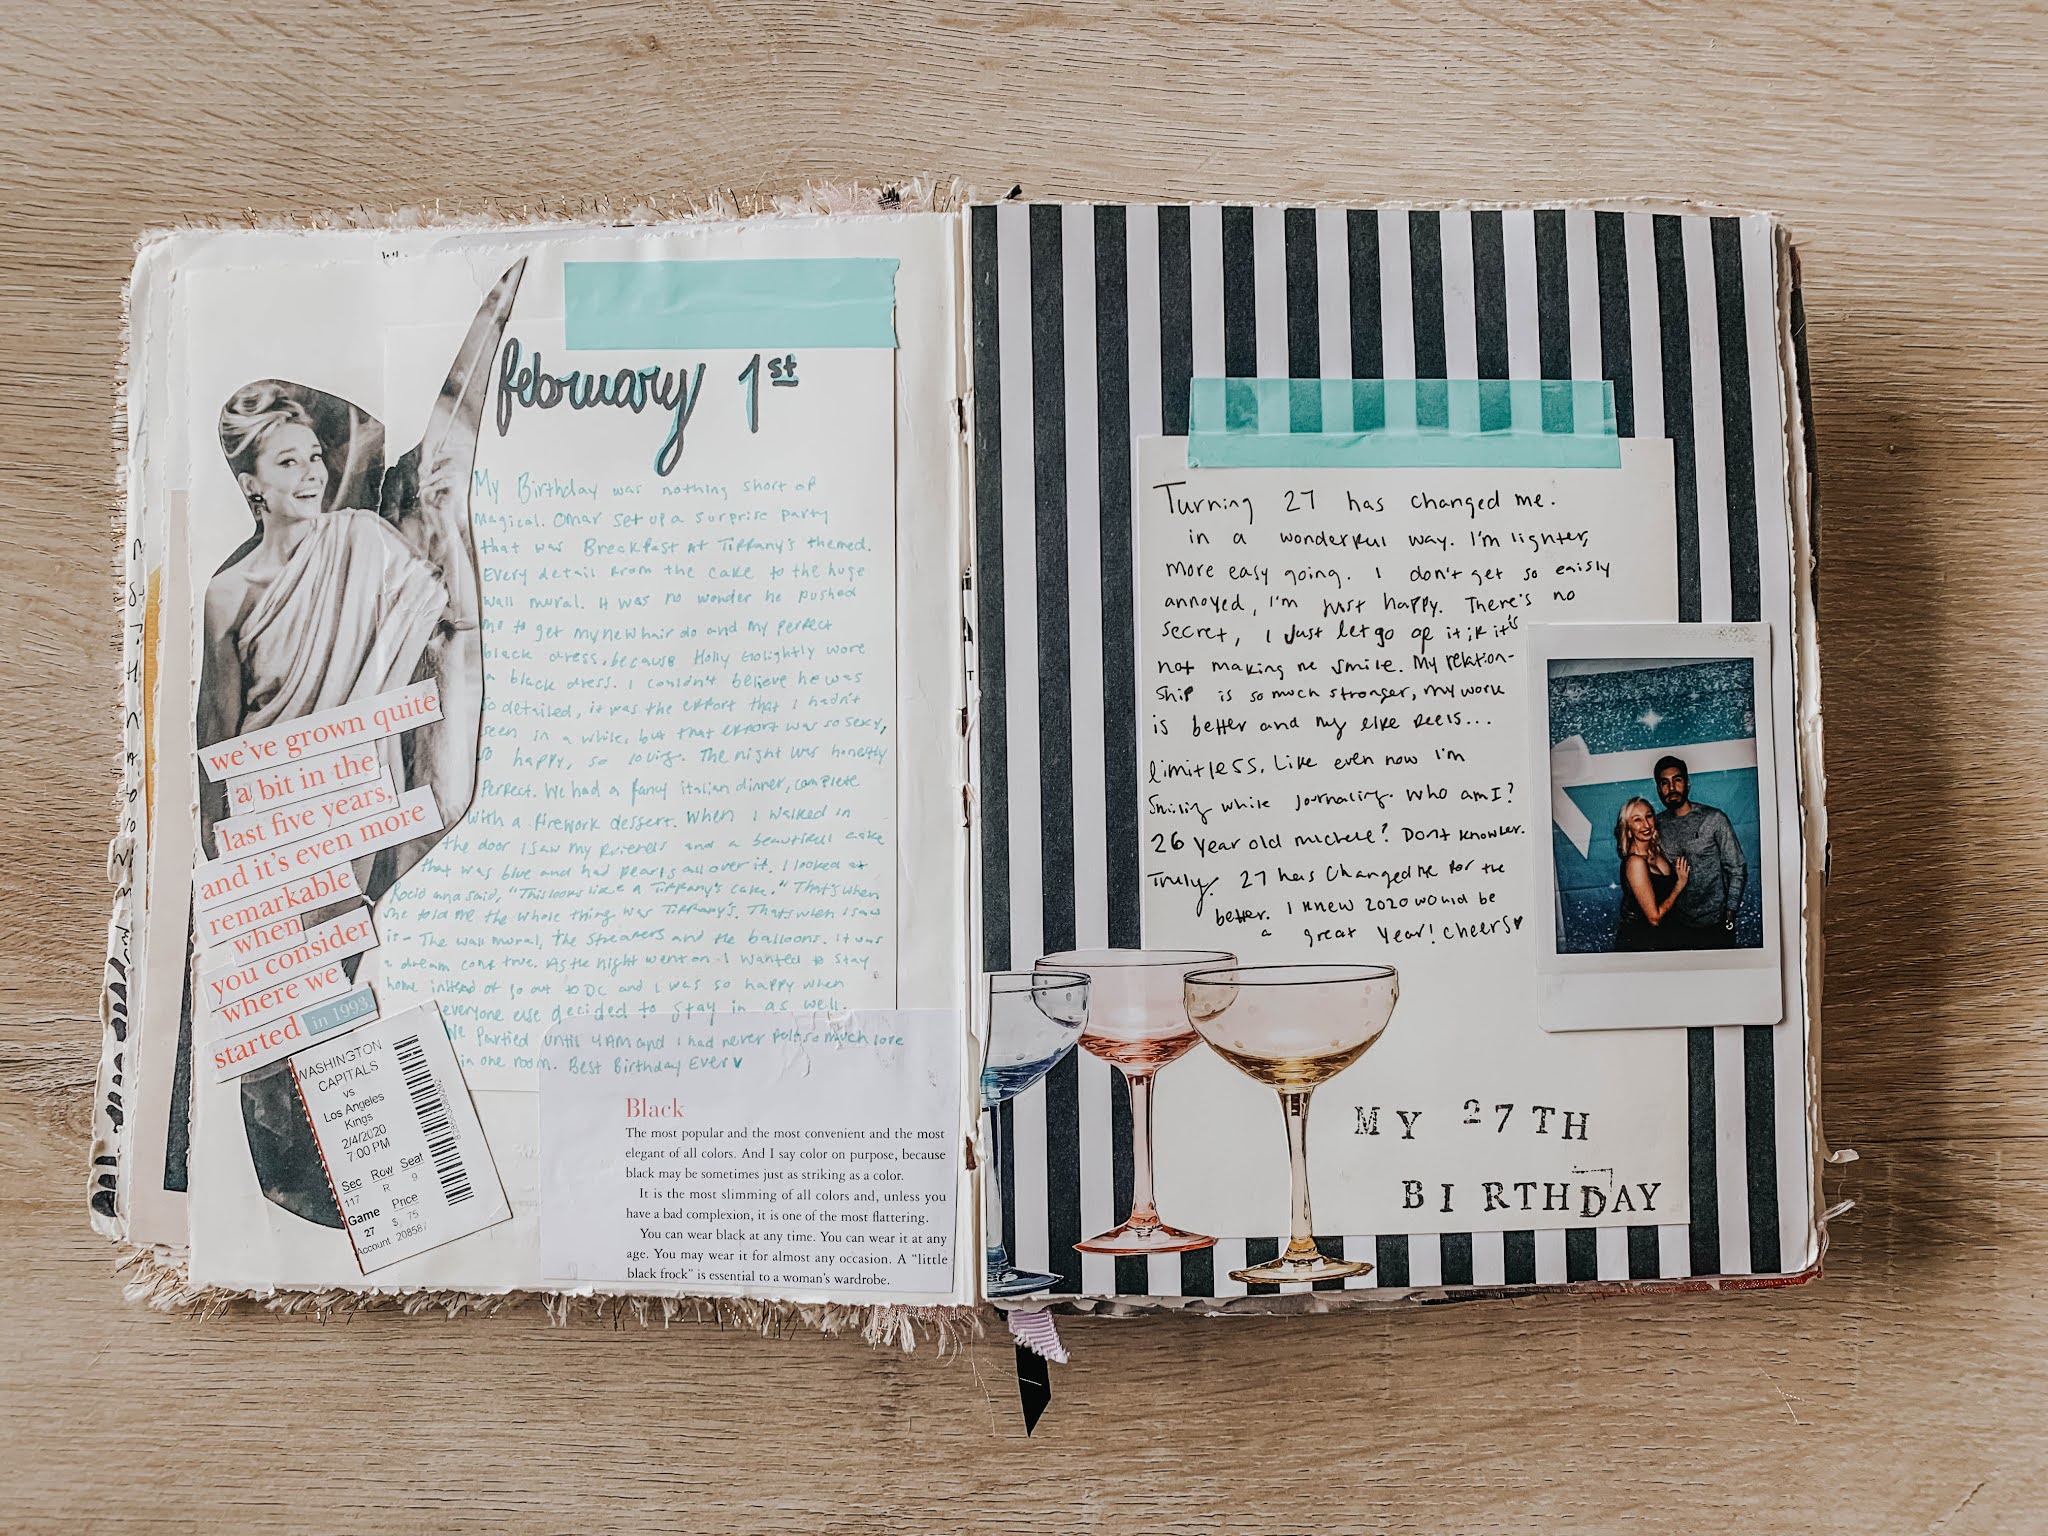 february 1st
My Birthday was nothing short of
Magical. Omar set up a surprise party
that was Breakfast At Tiffany's themed.
Every detail from the cake to the huge
wall mural. It was no wonder he pushed
me to get my new hair do and my perfect
black dress, because Holly Golightly wore
a black dress. I couldn't believe he was
so detailed, it was the effort that I hadn't
seen in a while, but that effort was so sexy,
so happy, so loving. The night was honestly
perfect. We had a fancy italian dinner, complete
with a firework dessert. When I walked in
the door I saw my friends and a beautiful cake
that was blue and had pearls all over it. I looked at
Rocio and said, "This looks like a Tiffany's cake." That's when
she told me the whole thing was Tiffany's. That's when I saw
it - The wall mural, the streamers and the balloons. It was
a dream come true. As the night went on I wanted to stay
home instead of go out to DC and I was so happy when
everyone else decided to stay in as well.
We partied until 4AM and I had never felt so much love
in one room. Best Birthday Ever ♥
we've grown quite
a bit in the
last five years,
and it's even more
remarkable
when
you consider
where we
started in 1993.
WASHINGTON
CAPITALS
vs
Los Angeles
Kings
2/4/2020
7:00 PM
Sec Row Seat
117 R 9
Game Price
27 $ 75
Account 208587
Black
The most popular and the most convenient and the most
elegant of all colors. And I say color on purpose, because
black may be sometimes just as striking as a color.
It is the most slimming of all colors and, unless you
have a bad complexion, it is one of the most flattering.
You can wear black at any time. You can wear it at any
age. You may wear it for almost any occasion. A "little
black frock" is essential to a woman's wardrobe.
Turning 27 has changed me.
in a wonderful way. I'm lighter,
more easy going. I don't get so eaisly
annoyed, I'm just happy. There's no
secret, I just let go of it if it's
not making me smile. My relation-
ship is so much stronger, my work
is better and my life feels...
limitless. Like even now I'm
smiling while journaling. Who am I?
26 year old michele? Don't know her.
Truly. 27 has changed me for the
better. I knew 2020 would be
a great year! Cheers ♥
MY 27TH
BIRTHDAY